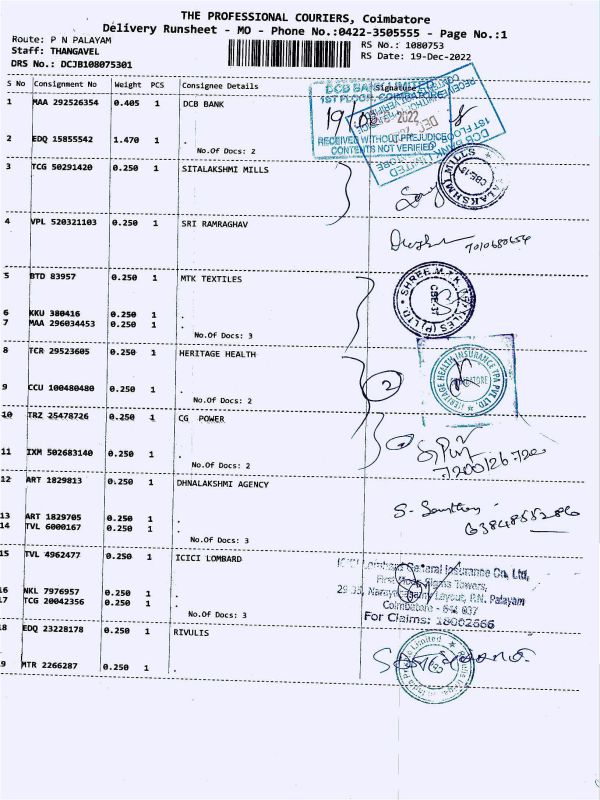 THE PROFESSIONAL COURIERS, Coimbatore
Delivery Runsheet - MO - Phone No.:0422-3505555 - Page No.:1
Route: P N PALAYAM
Staff: THANGAVEL
DRS No.: DCJB108075301
RS No.: 1080753
RS Date: 19-Dec-2022
S No Consignment No Weight PCS Consignee Details Signature
1 MAA 292526354 0.405 1 DCB BANK
DCB BANK LIMITED
1ST FLOOR, COIMBATORE
2022
RECEIVED WITHOUT PREJUDICE
CONTENTS NOT VERIFIED
2 EDQ 15855542 1.470 1 .
No.Of Docs: 2
3 TCG 50291420 0.250 1 SITALAKSHMI MILLS
4 VPL 520321103 0.250 1 SRI RAMRAGHAV
7010680654
5 BTD 83957 0.250 1 MTK TEXTILES
6 KKU 380416 0.250 1 .
7 MAA 296034453 0.250 1 .
No.Of Docs: 3
8 TCR 29523605 0.250 1 HERITAGE HEALTH
HERITAGE HEALTH INSURANCE TPA PVT LTD
9 CCU 100480480 0.250 1 .
No.Of Docs: 2
2
10 TRZ 25478726 0.250 1 CG POWER
11 IXM 502683140 0.250 1 .
No.Of Docs: 2
7200126720
12 ART 1829813 0.250 1 DHNALAKSHMI AGENCY
13 ART 1829705 0.250 1 .
14 TVL 6000167 0.250 1 .
No.Of Docs: 3
15 TVL 4962477 0.250 1 ICICI LOMBARD
ICICI Lombard General Insurance Co, Ltd,
First Floor, Towers,
Layout, P.N. Palayam
Coimbatore - 641 037
For Claims: 18002666
16 NKL 7976957 0.250 1 .
17 TCG 20042356 0.250 1 .
No.Of Docs: 3
18 EDQ 23228178 0.250 1 RIVULIS
9 MTR 2266287 0.250 1 .